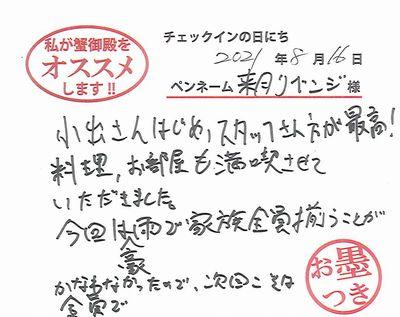 私が蟹御殿を
オススメ
します!!
チェックインの日にち
2021年8月16日
ペンネーム 来月リベンジ様
小出さんはじめ、スタッフさん方が最高!
料理、お部屋も満喫させて
いただきました。
今回は豪雨で家族全員揃うことが
かなわなかったので、次回こそは
全員で
お墨
つき